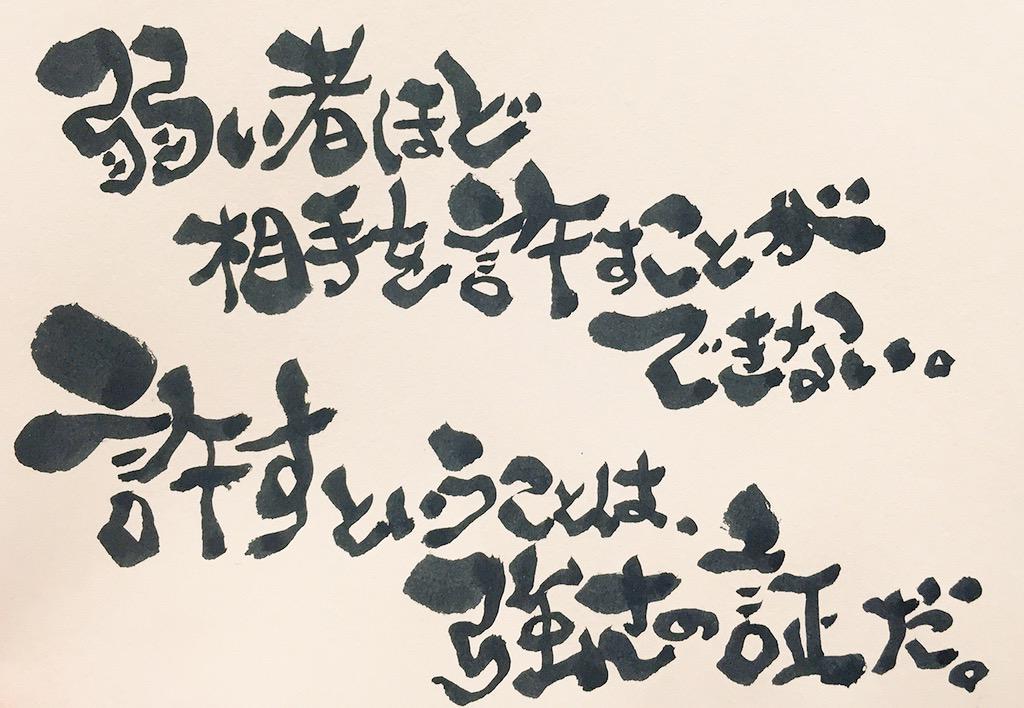 弱い者ほど
相手を許すことが
できない。
許すということは、
強さの証だ。